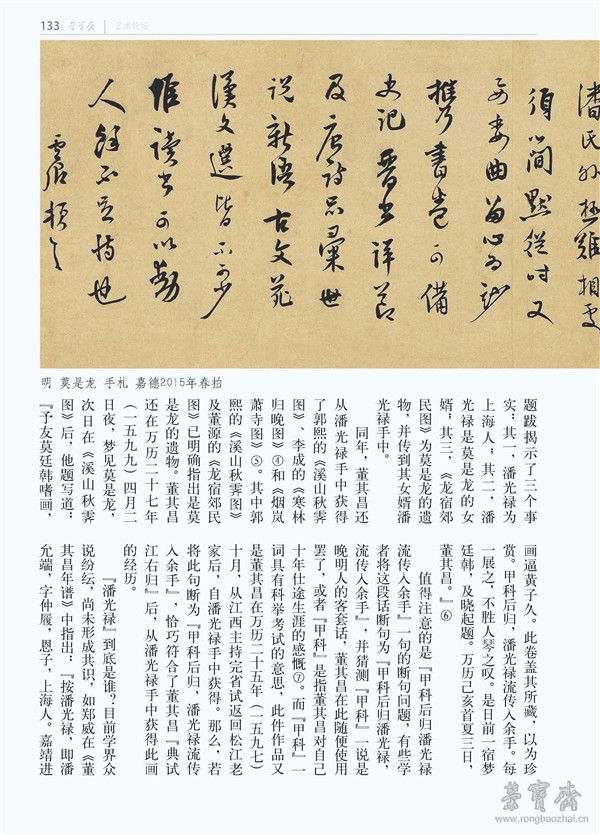 133 荣宝斋 艺术论坛
潘氏 難相
須 間默從 又
曲
携 書卷可備
史記晉書详节
及唐詩品彙世
说新语古文苑
漢文選皆不可少
惟读书可以動
人餘不足恃也
明 莫是龙 手札 嘉德2015年春拍
题跋揭示了三个事
实:其一,潘光禄为
上海人;其二,潘
光禄是莫是龙的女
婿;其三,《龙宿郊
民图》为莫是龙的遗
物,并传到其女婿潘
光禄手中。
同年,董其昌还
从潘光禄手中获得
了郭熙的《溪山秋霁
图》、李成的《寒林
归晚图》④和《烟岚
萧寺图》⑤。其中郭
熙的《溪山秋霁图》
及董源的《龙宿郊民
图》已明确指出是莫
是龙的遗物。董其昌
还在万历二十七年
(一五九九)四月二
日夜,梦见莫是龙,
次日在《溪山秋霁
图》后,他题写道:
『予友莫廷韩嗜画,
画逼黄子久。此卷盖其所藏,以为珍
赏。甲科后归,潘光禄流传入余手。每
一展之,不胜人琴之叹。是日前一宿梦
廷韩,及晓起题。万历己亥首夏三日,
董其昌。』⑥
值得注意的是『甲科后归潘光禄
流传入余手』一句的断句问题,有些学
者将这段话断句为『甲科后归潘光禄,
流传入余手』,并猜测『甲科』一说是
晚明人的客套话,董其昌在此随便使用
罢了,或者『甲科』是指董其昌对自己
十年仕途生涯的感慨⑦。而『甲科』一
词具有科举考试的意思,此件作品又
是董其昌在万历二十五年(一五九七)
十月,从江西主持完省试返回松江老
家后,自潘光禄手中获得。那么,若
将此句断为『甲科后归,潘光禄流传
入余手』,恰巧符合了董其昌『典试
江右归』后,从潘光禄手中获得此画
的经历。
『潘光禄』到底是谁?目前学界众
说纷纭,尚未形成共识,如郑威在《董
其昌年谱》中指出:『按潘光禄,即潘
允端,字仲履,恩子,上海人。嘉靖进
荣宝斋
www.rongbaozhai.cn